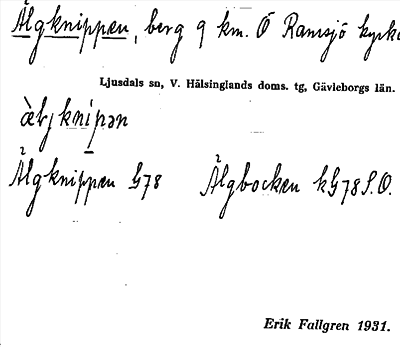 Älgknippen, berg 9 km. Ö Ramsjö kyrka
Ljusdals sn, V. Hälsinglands doms. tg, Gävleborgs län.
Älgknippen G78 Älgbocken kG78S.O.
Erik Fallgren 1931.